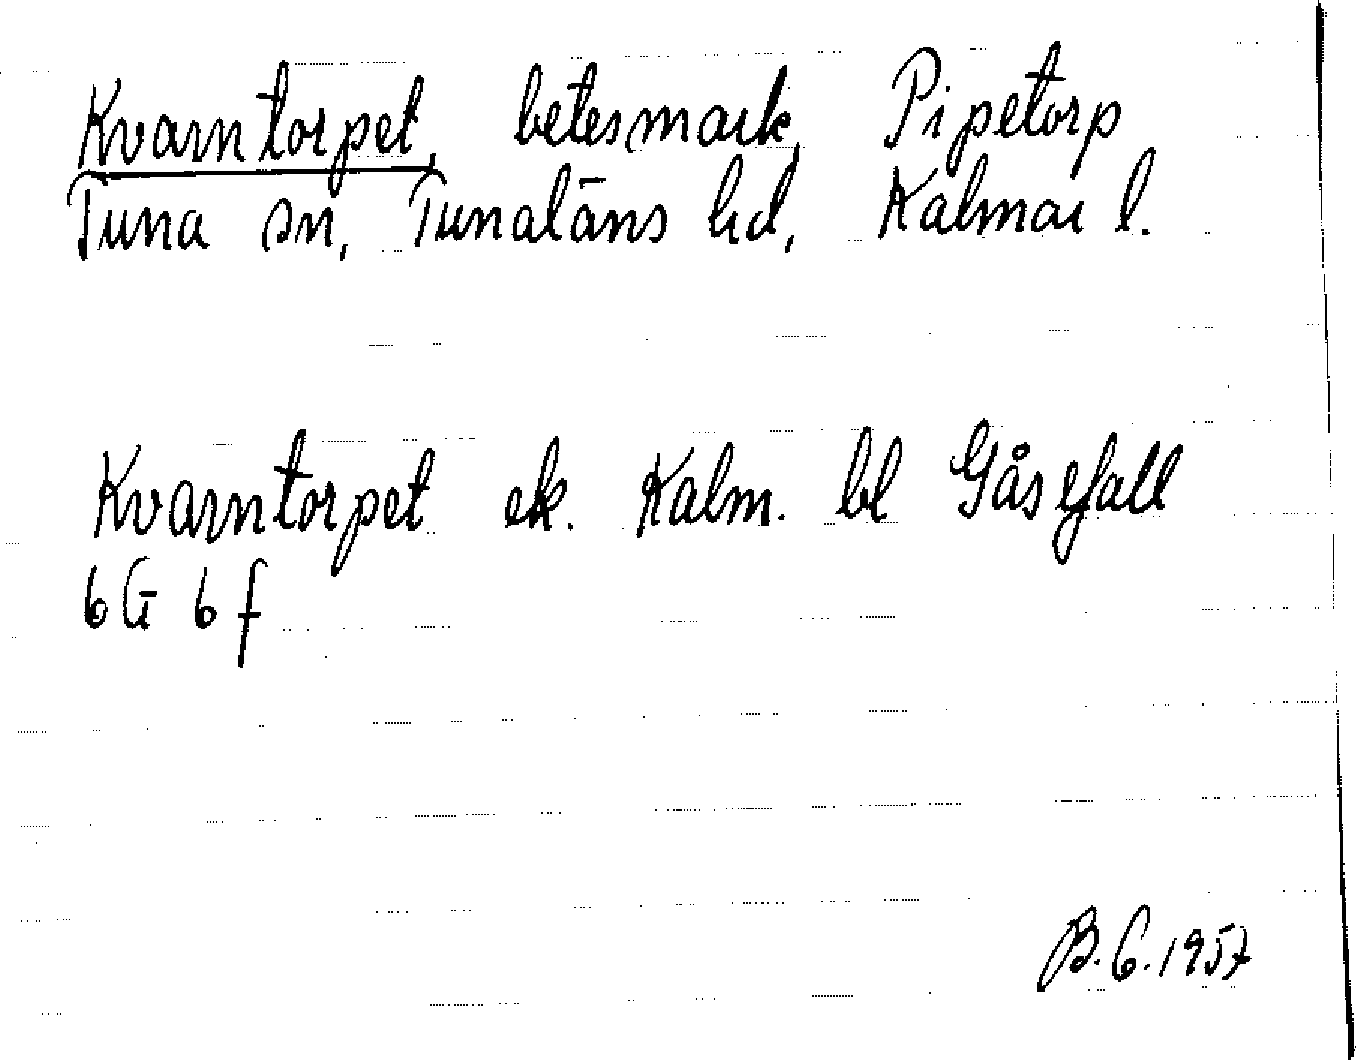 Kvarntorpet, betesmark, Pipetorp
Tuna sn, Tunaläns hd, Kalmar l.
Kvarntorpet ek. Kalm. bl Gåsefall
6G 6f
B.G.1957